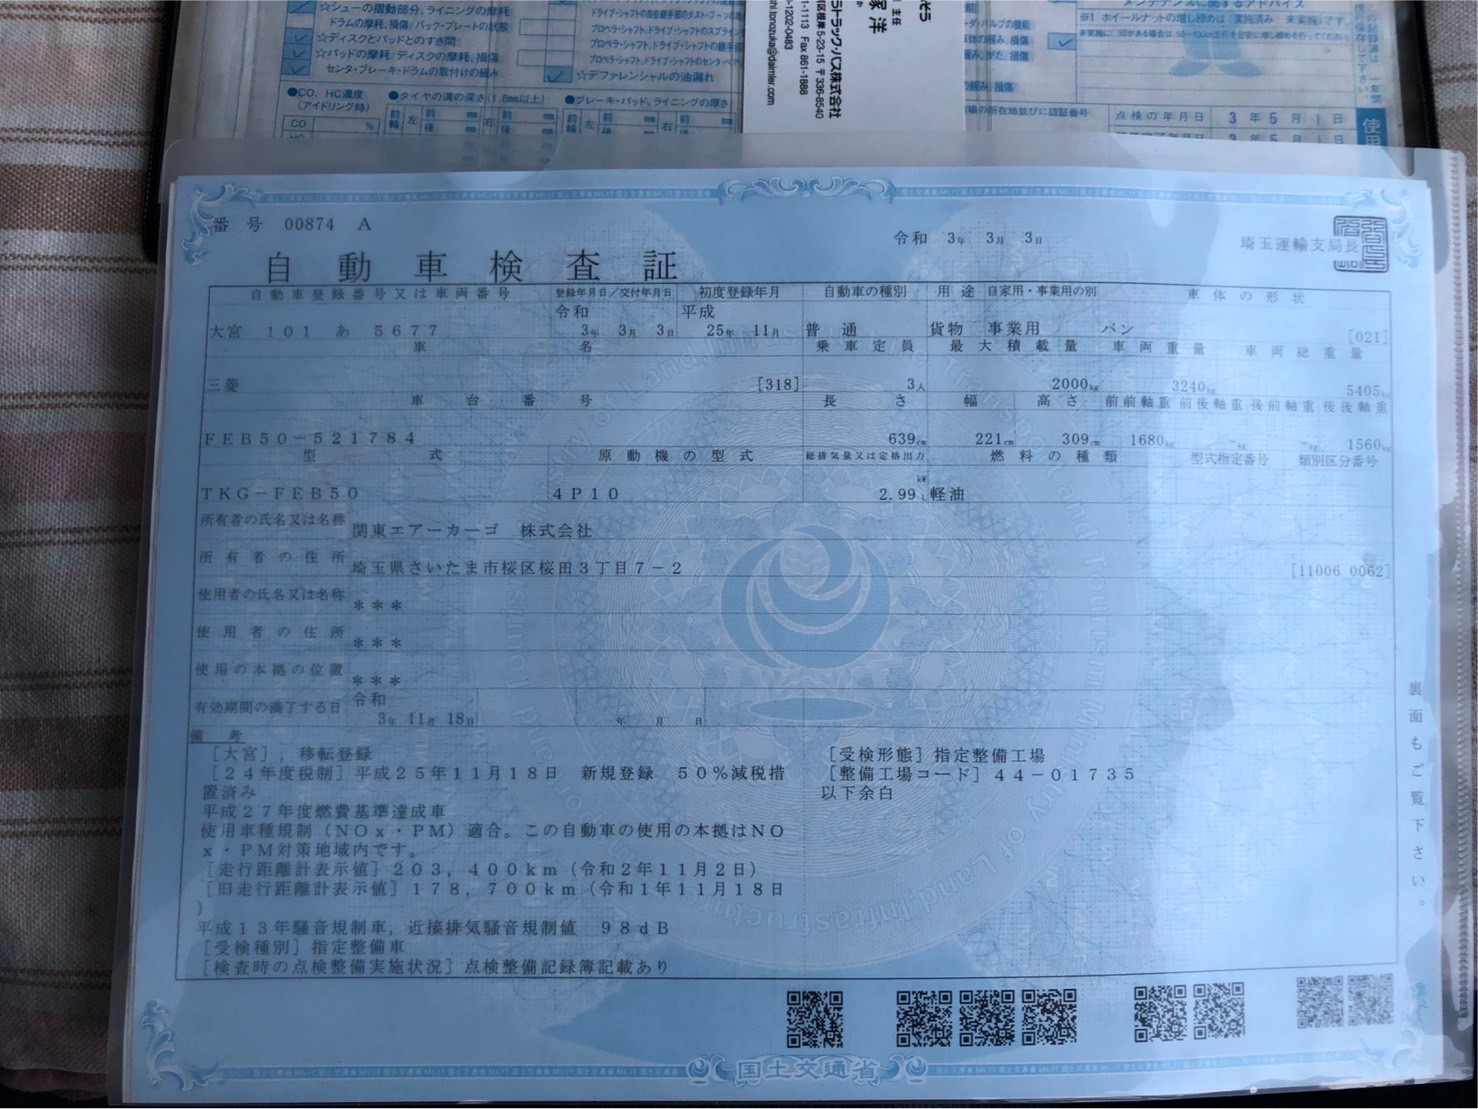 ☆シューの摺動部分、ライニングの摩耗
ドラムの摩耗、損傷/バック・プレートの状態
☆ディスクとパッドとのすき間
☆パッドの摩耗、ディスクの摩耗、損傷
センタ・ブレーキ・ドラムの取付けの緩み
☆デファレンシャルの油漏れ
●CO、HC濃度
(アイドリング時)
CO %
●タイヤの溝の深さ(1.6mm以上)
●ブレーキ・パッド、ライニングの厚さ
主任
塚 洋
トラック・バス株式会社
区根岸 5-23-15 〒336-8540
-1113 Fax 861-1888
-1202-0483
hi.tonozuka@daimler.com
メンテナンスに関するアドバイス
点検の年月日 3 年 5 月 1 日
番号 00874 A
令和 3年 3月 3日
埼玉運輸支局長
自動車検査証
自動車登録番号又は車両番号 登録年月日/交付年月日 初度登録年月 自動車の種別 用途 自家用・事業用の別 車体の形状
大宮 101 あ 5677 令和 3年 3月 3日 平成 25年 11月 普通 貨物 事業用 バン [021]
車名 乗車定員 最大積載量 車両重量 車両総重量
三菱 [318] 3人 2000kg 3240kg 5405kg
車台番号 長さ 幅 高さ 前前軸重 前後軸重 後前軸重 後後軸重
FEB50-521784 639cm 221cm 309cm 1680kg -kg -kg 1560kg
型式 原動機の型式 総排気量又は定格出力 燃料の種類 型式指定番号 類別区分番号
TKG-FEB50 4P10 2.99 kW L 軽油
所有者の氏名又は名称 関東エアーカーゴ 株式会社
所有者の住所 埼玉県さいたま市桜区桜田3丁目7-2 [11006 0062]
使用者の氏名又は名称 ***
使用者の住所 ***
使用の本拠の位置 ***
有効期間の満了する日 令和 3年 11月 18日 年 月 日
備考
[大宮],移転登録
[24年度税制]平成25年11月18日 新規登録 50%減税措
置済み
平成27年度燃費基準達成車
使用車種規制(NOx・PM)適合。この自動車の使用の本拠はNO
x・PM対策地域内です。
[走行距離計表示値]203,400km(令和2年11月2日)
[旧走行距離計表示値]178,700km(令和1年11月18日
)
平成13年騒音規制車,近接排気騒音規制値 98dB
[受検種別]指定整備車
[検査時の点検整備実施状況]点検整備記録簿記載あり
[受検形態]指定整備工場
[整備工場コード]44-01735
以下余白
裏面もご覧下さい。
国土交通省